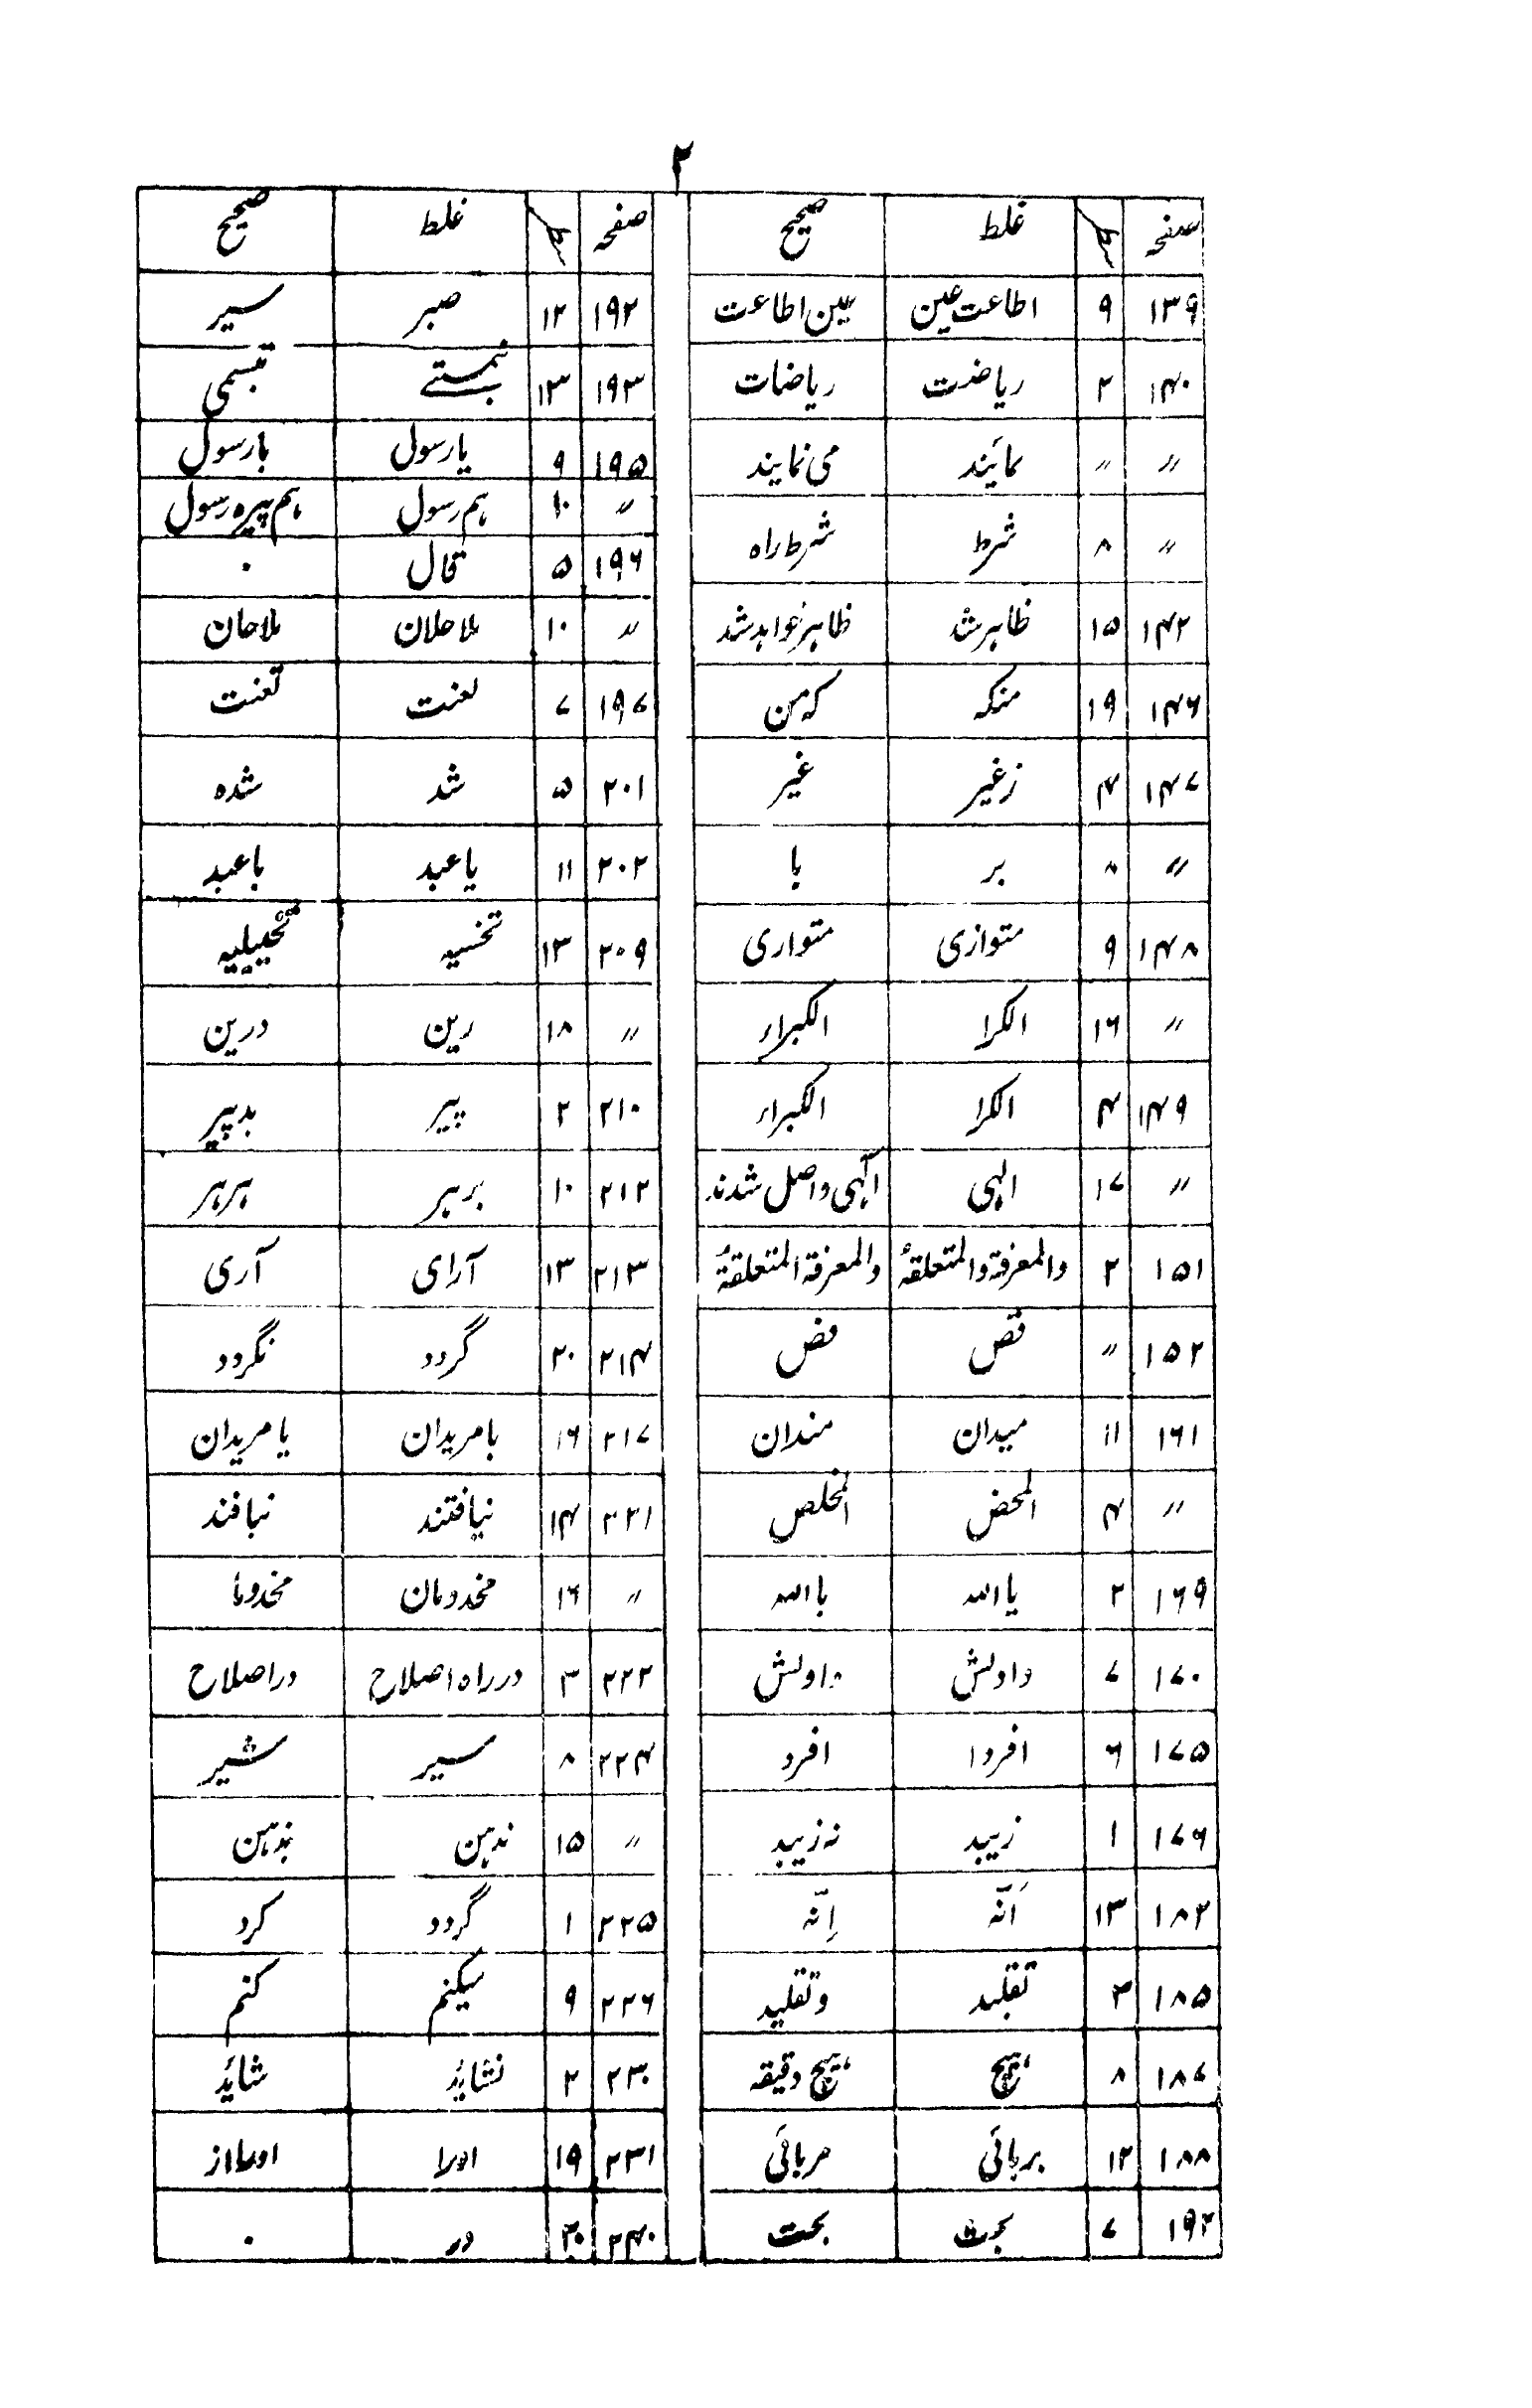 ۲
صفحہ سطر غلط صحیح
۱۳۹ ۹ اطاعت عین عین اطاعت
۱۴۰ ۲ ریاضت ریاضات
〃 〃 نمایٔند می نمایند
〃 ۸ شرط شرط راہ
۱۴۲ ۱۵ ظاہر شد ظاہر خواہد شد
۱۴۶ ۱۹ منکہ کہ من
۱۴۷ ۴ زغیر غیر
〃 ۸ بر با
۱۴۸ ۹ متوازی متواری
〃 ۱۶ الکرا الکبراء
۱۴۹ ۴ الکرا الکبراء
〃 ۱۷ الہی الٓہی واصل شدند
۱۵۱ ۲ والمعرفۃ والمتعلقۃ والمعرفۃ المتعلقۃ
۱۵۲ 〃 قص فص
۱۶۱ ۱۱ میدان مندان
〃 ۴ المحض المخلص
۱۶۹ ۲ یا اللہ با اللہ
۱۷۰ ۷ دادلش داولش
۱۷۵ ۶ افردا افرد
۱۷۶ ۱ زیبد نہ زیبد
۱۸۲ ۱۳ اَنّہ اِنّہ
۱۸۵ ۳ تقلید و تقلید
۱۸۷ ۸ ہیچ ہیچ دقیقہ
۱۸۸ ۱۲
۱۹۲ ۷ بحت
صفحہ سطر غلط صحیح
۱۹۲ ۱۲ صبر سیر
۱۹۳ ۱۳ تبسمی
۱۹۵ ۹ یا رسول با رسول
〃 ۱۰ ہم رسول ہم پیرہ رسول
۱۹۶ ۵ قال ۰
〃 ۱۰ ملاحلان ملاحان
۱۹۷ ۷ لعنت تعنت
۲۰۱ ۵ شد شدہ
۲۰۲ ۱۱ یا عبد با عبد
۲۰۹ ۱۳ تخسیہ تخییلیہ
〃 ۱۸ رین درین
۲۱۰ ۲ پیر بد پیر
۲۱۲ ۱۰ بر ہر ہر ہر
۲۱۳ ۱۳ آرای آری
۲۱۴ ۲۰ گردد نگردد
۲۱۷ ۱۶ با مریدان یا مریدان
۲۲۱ ۱۴ نیافتند نبافند
〃 ۱۶ مخدومان مخدوما
۲۲۲ ۳ در راہ اصلاح در اصلاح
۲۲۴ ۸ سیر شیر
〃 ۱۵ ندہن بذہن
۲۲۵ ۱ گردد کرد
۲۲۶ ۹ میکنم کنم
۲۳۰ ۲ نشایٔد شایٔد
۲۳۱ ۱۹ اورا اورا از
۲۴۰ ۲۰ در ۰